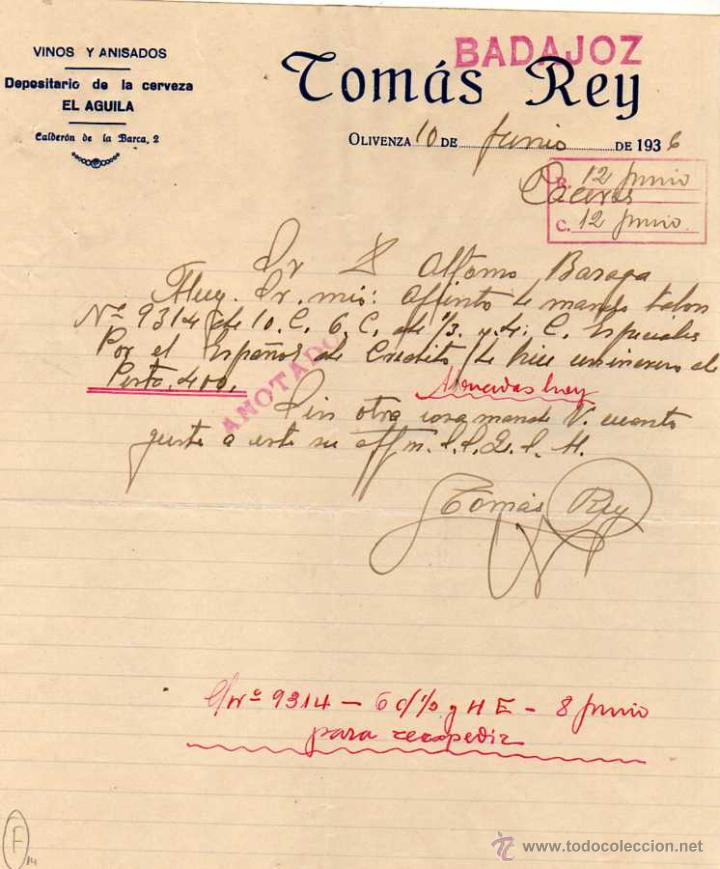 VINOS Y ANISADOS
Depositario de la cerveza
EL AGUILA
Calderón de la Barca, 2
BADAJOZ
Tomás Rey
OLIVENZA 10 DE Junio DE 1936
R. 12 Junio
Caceres
C. 12 Junio
Sr D Alfonso
Muy Sr. mio: Adjunto le mando talon
Nº 9314 de 10. C. 6. C. de 1/3. y 4. C. Especiales
Por el Español de Credito le hice un de
Pesta. 400.
ANOTADO
hoy
Sin otra cosa mande V. cuanto
guste a este su affm. S. S. Q. E. S. M.
Tomás Rey
C/Nº 9314 - 6 c/ 1/3 y 4 E - 8 Junio
para
F
14
www.todocoleccion.net